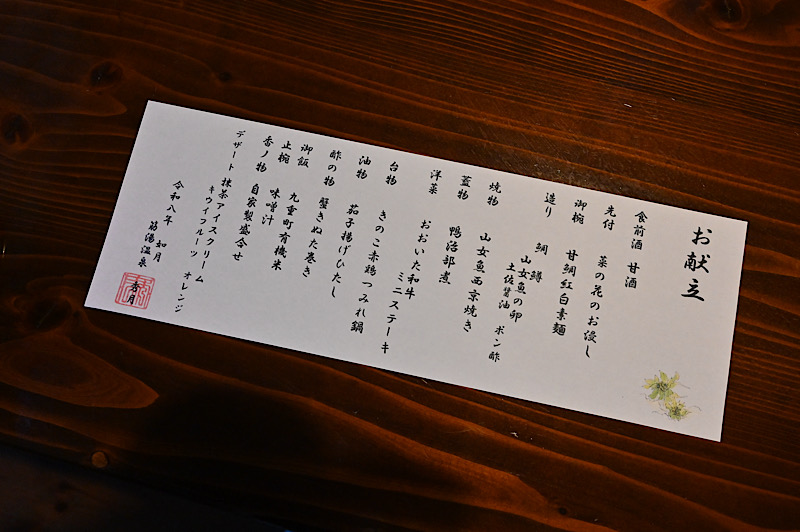 お献立
食前酒 甘酒
先付 菜の花のお浸し
御椀 甘鯛紅白素麺
造り 鯛 鱒 山女魚の卵
土佐醤油 ポン酢
焼物 山女魚西京焼き
蓋物 鴨治部煮
洋菜 おおいた和牛
ミニステーキ
台物 きのこ赤鶏つみれ鍋
油物 茄子揚げひたし
酢の物 蟹きぬた巻き
御飯 九重町有機米
止椀 味噌汁
香ノ物 自家製盛合せ
デザート 抹茶アイスクリーム
キウイフルーツ オレンジ
令和八年 如月
筋湯温泉 秀月